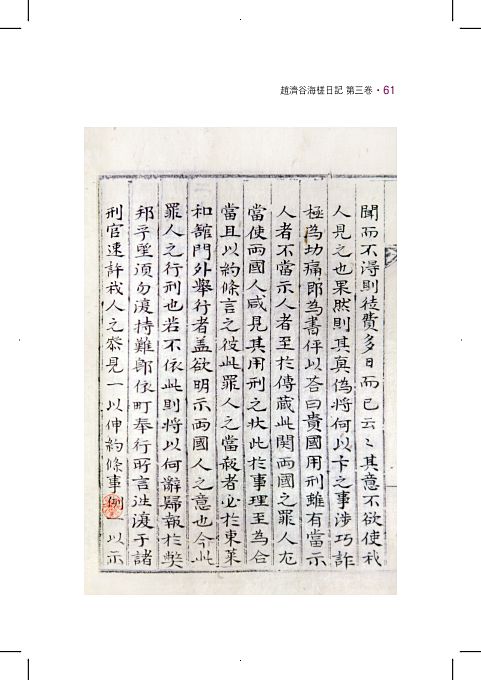 趙濟谷海槎日記 第三卷 · 61
聞而不得則徒費多日而已云〻其意不欲使我
人見之也果然則其真偽將何以卞之事涉巧詐
極爲功痛即爲書伻以荅曰貴國用刑雖有當示
人者不當示人者至於傳藏此関兩國之罪人尤
當使兩國人咸見其用刑之狀此於事理至爲合
當且以約條言之彼此罪人之當殺者必於東萊
和舘門外擧行者盖欲明示兩國人之意也今此
罪人之行刑也若不依此則將以何辭歸報於契
邦乎望須勿渡持難卽依町奉行所言迣渡于諸
刑官速許我人之叅見一以伸約條事例一以示